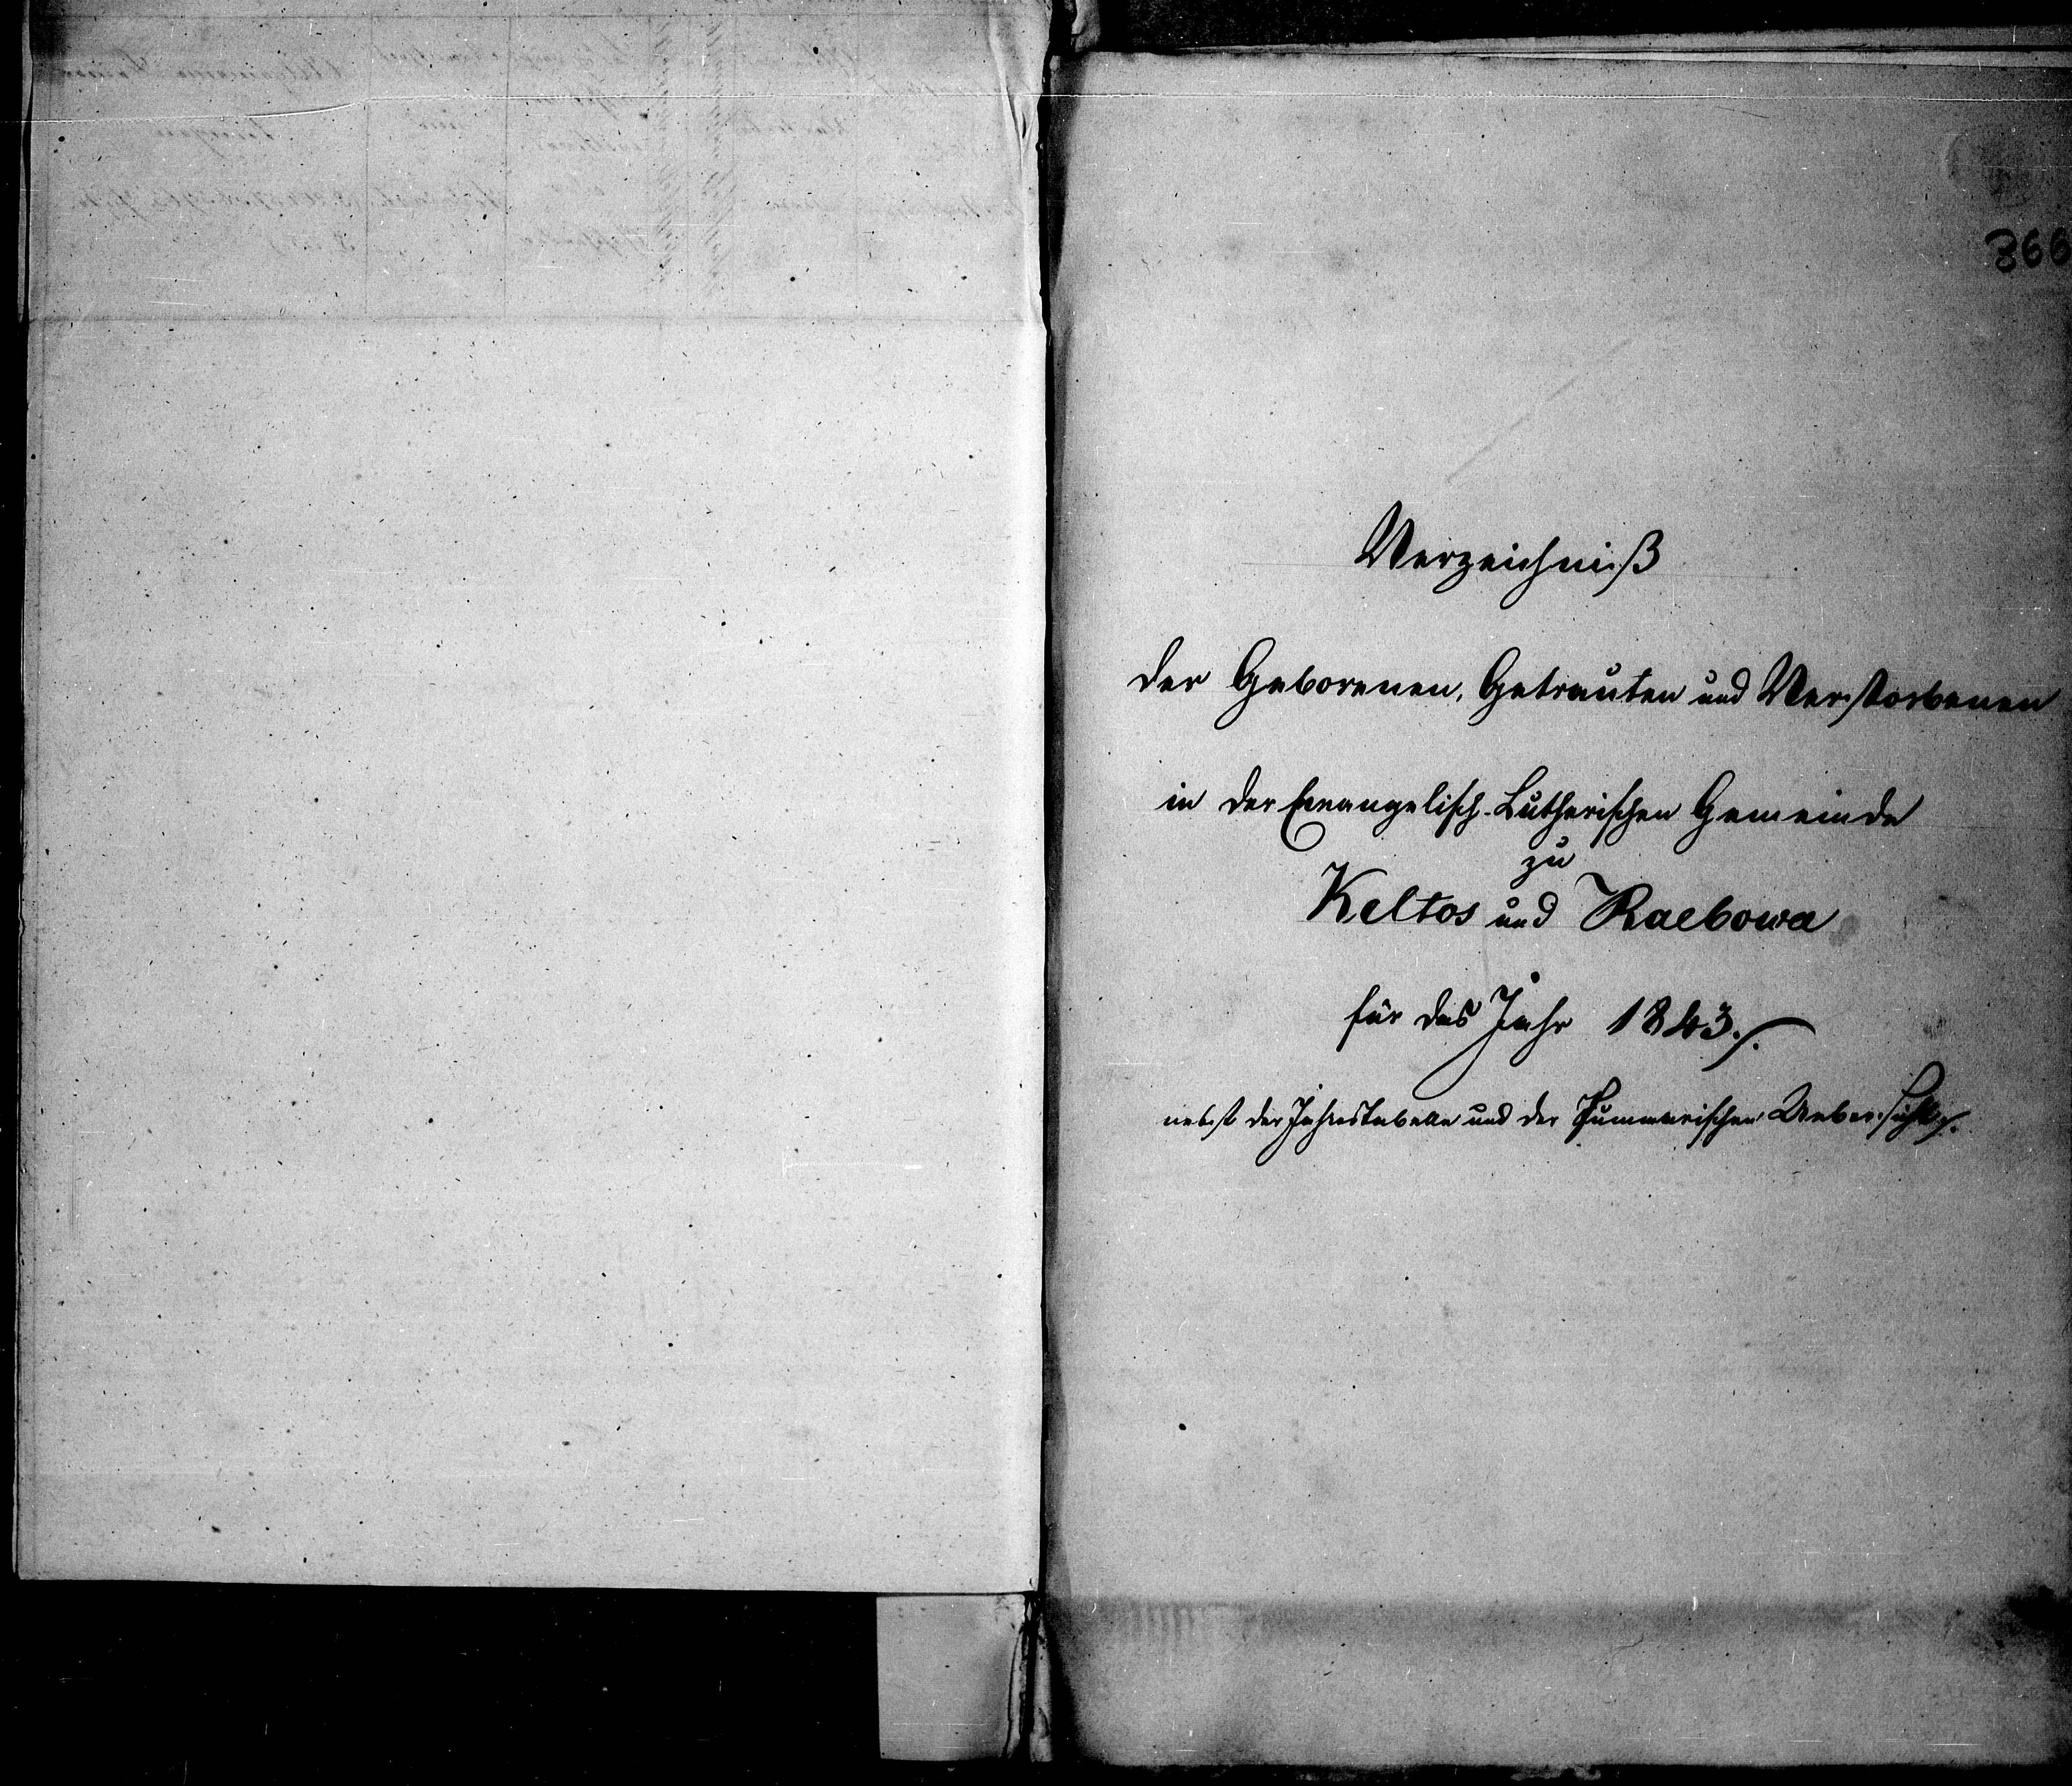 366
Verzeichniß
der Geborenen, Getrauten und Verstorbenen
in der Evangelisch-Lutherischen Gemeinde
zu
Keltos und Raebowa
für das Jahr 1843.
nebst der Jahrestabelle und der Summarischen Uebersicht.